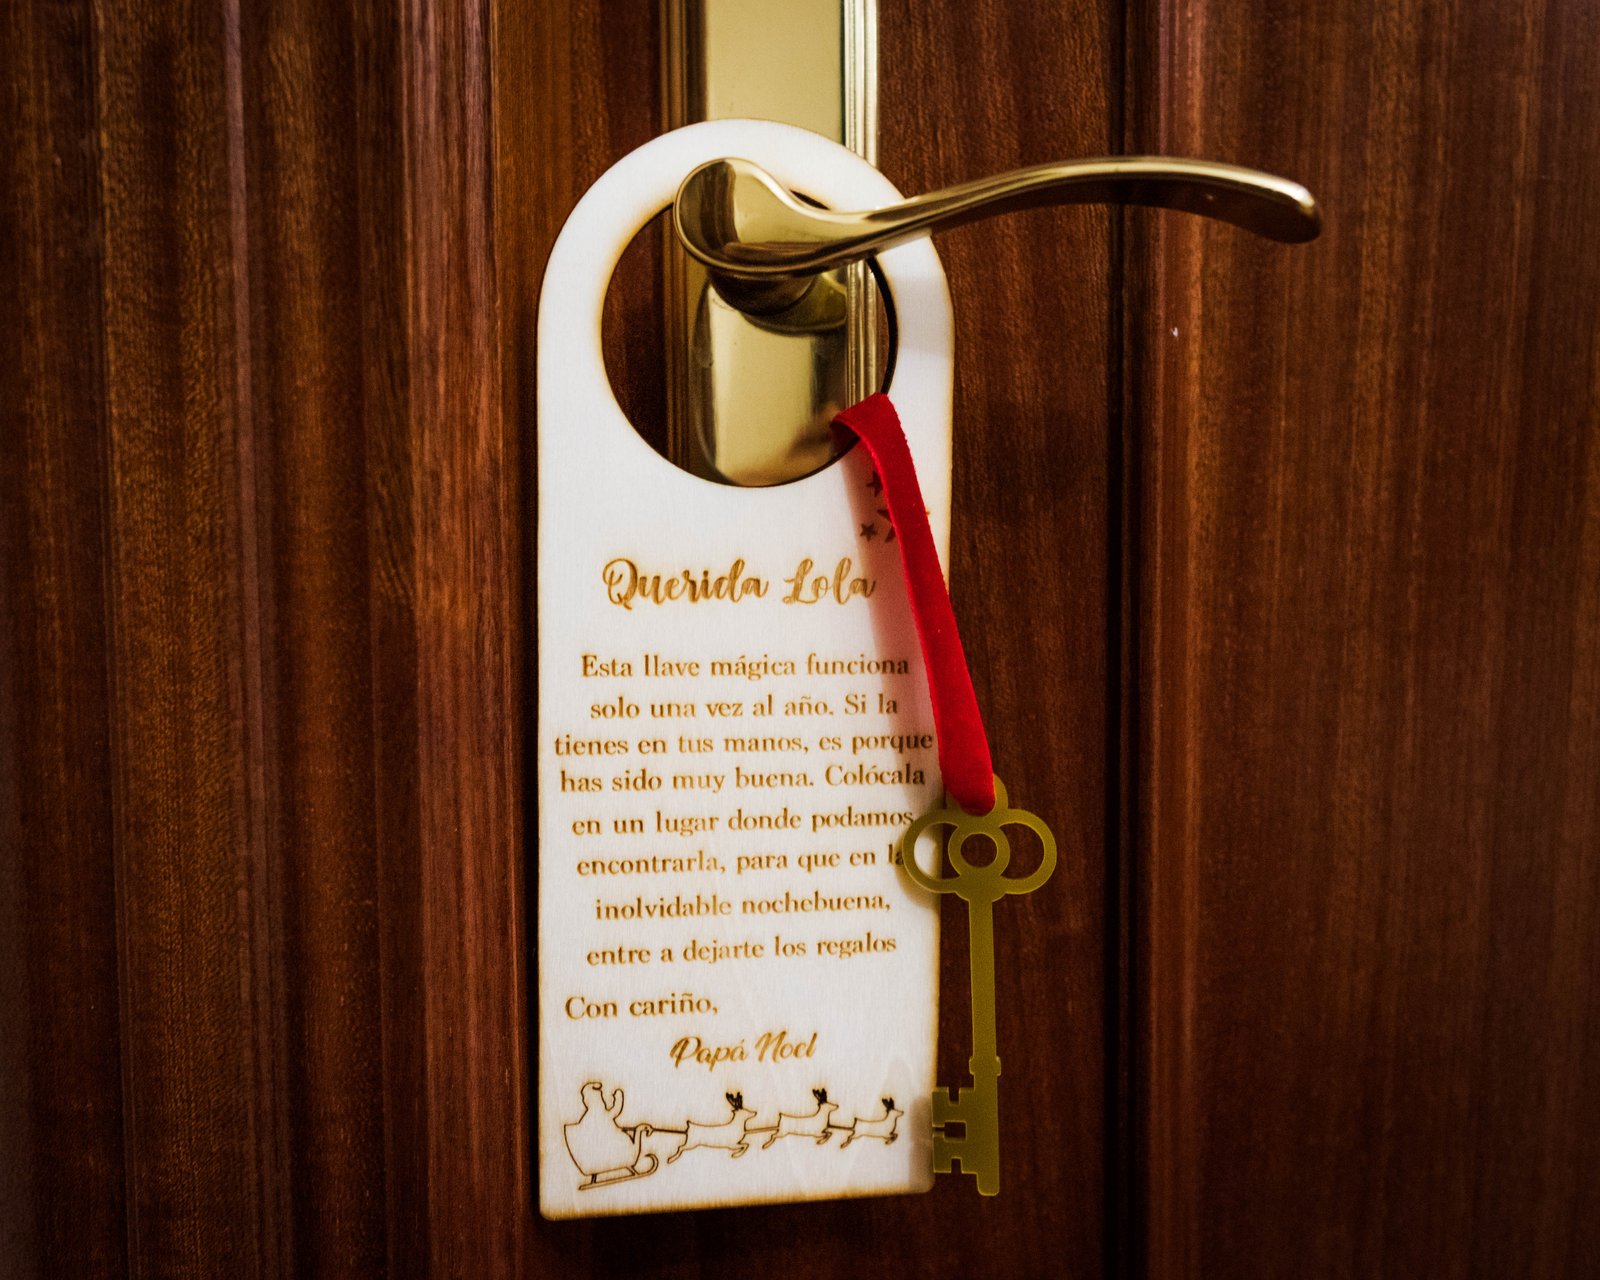 Querida Lola
Esta llave mágica funciona
solo una vez al año. Si la
tienes en tus manos, es porque
has sido muy buena. Colócala
en un lugar donde podamos
encontrarla, para que en la
inolvidable nochebuena,
entre a dejarte los regalos
Con cariño,
Papá Noel